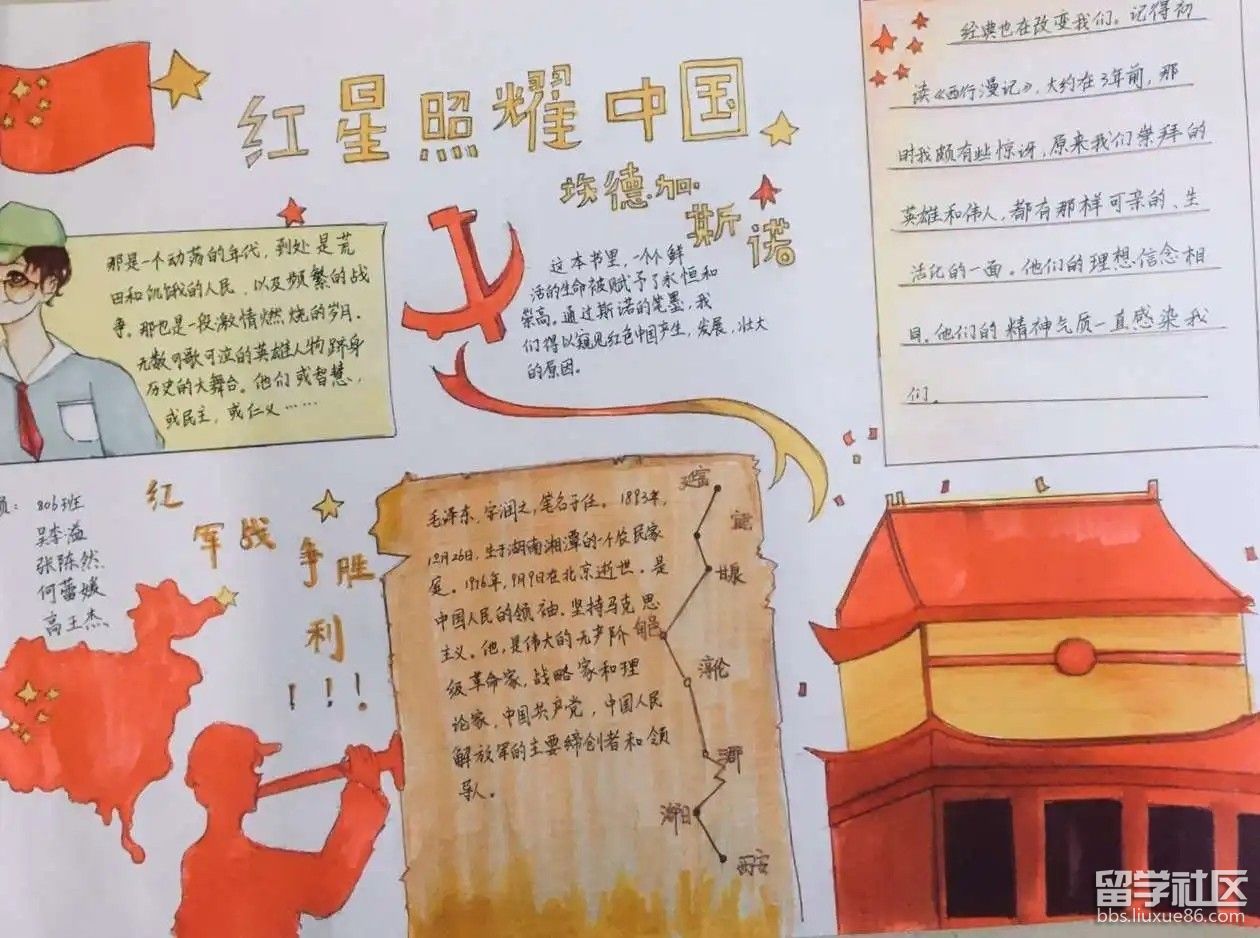 红星照耀中国
埃德加·
斯诺
那是一个动荡的年代，到处是荒
田和饥饿的人民，以及频繁的战
争。那也是一段激情燃烧的岁月。
无数可歌可泣的英雄人物跻身
历史的大舞台。他们或智慧，
或民主，或仁义……
这本书里，一个个鲜
活的生命被赋予了永恒和
崇高。通过斯诺的笔墨，我
们得以窥见红色中国产生，发展，壮大
的原因。
经典也在改变我们。记得初
读《西行漫记》，大约在3年前，那
时我颇有些惊讶，原来我们崇拜的
英雄和伟人，都有那样可亲的、生
活化的一面。他们的理想信念相
他们的精神气质一直感染我
们。
员：806班
张陈然
何蕾媛
高王杰
红
军战
争胜
利
！！！
毛泽东，字润之，笔名子任。1893年，
12月26日，生于湖南湘潭的一个农民家
庭。1976年，9月9日在北京逝世。是
中国人民的领袖、坚持马克思
主义。他，是伟大的无产阶
级革命家，战略家和理
论家，中国共产党，中国人民
解放军的主要缔创者和领
导人。
甘泉
西安
留学社区
bbs.liuxue86.com